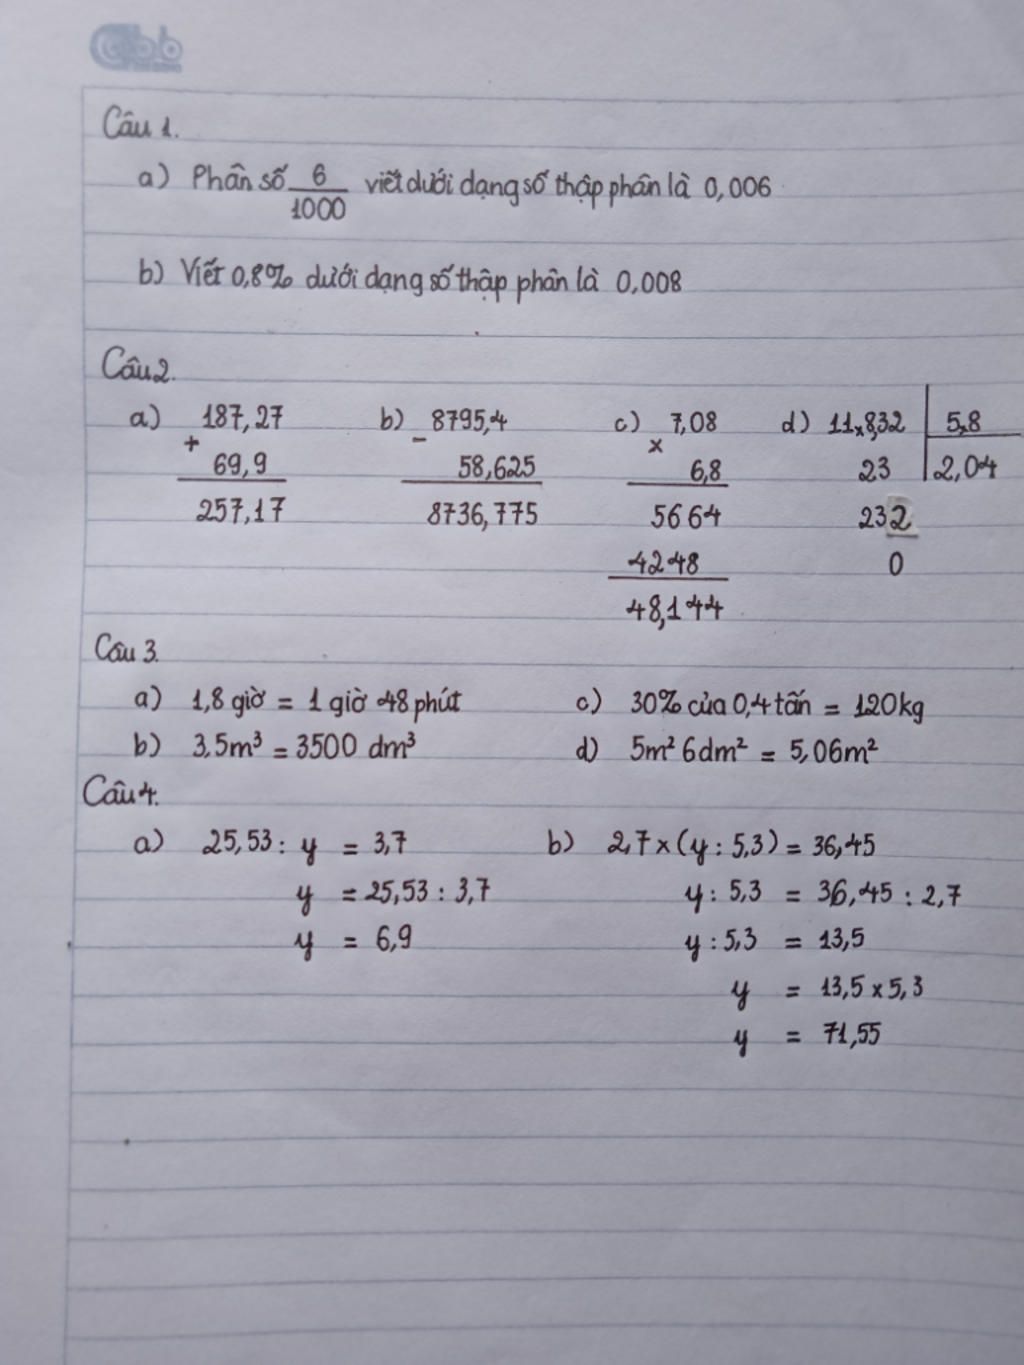 Câu 1.
a) Phân số 6/1000 viết dưới dạng số thập phân là 0,006
b) Viết 0,8% dưới dạng số thập phân là 0,008
Câu 2.
a) 187,27 b) 8795,4 c) 7,08 d) 11,8,32 5,8
+ - x
69,9 58,625 6,8 23 2,04
257,17 8736,775 5664 232
4248 0
48,144
Câu 3.
a) 1,8 giờ = 1 giờ 48 phút c) 30% của 0,4 tấn = 120kg
b) 3,5m³ = 3500 dm³ d) 5m² 6dm² = 5,06m²
Câu 4.
a) 25,53 : y = 3,7 b) 2,7 x (y : 5,3) = 36,45
y = 25,53 : 3,7 y : 5,3 = 36,45 : 2,7
y = 6,9 y : 5,3 = 13,5
y = 13,5 x 5,3
y = 71,55